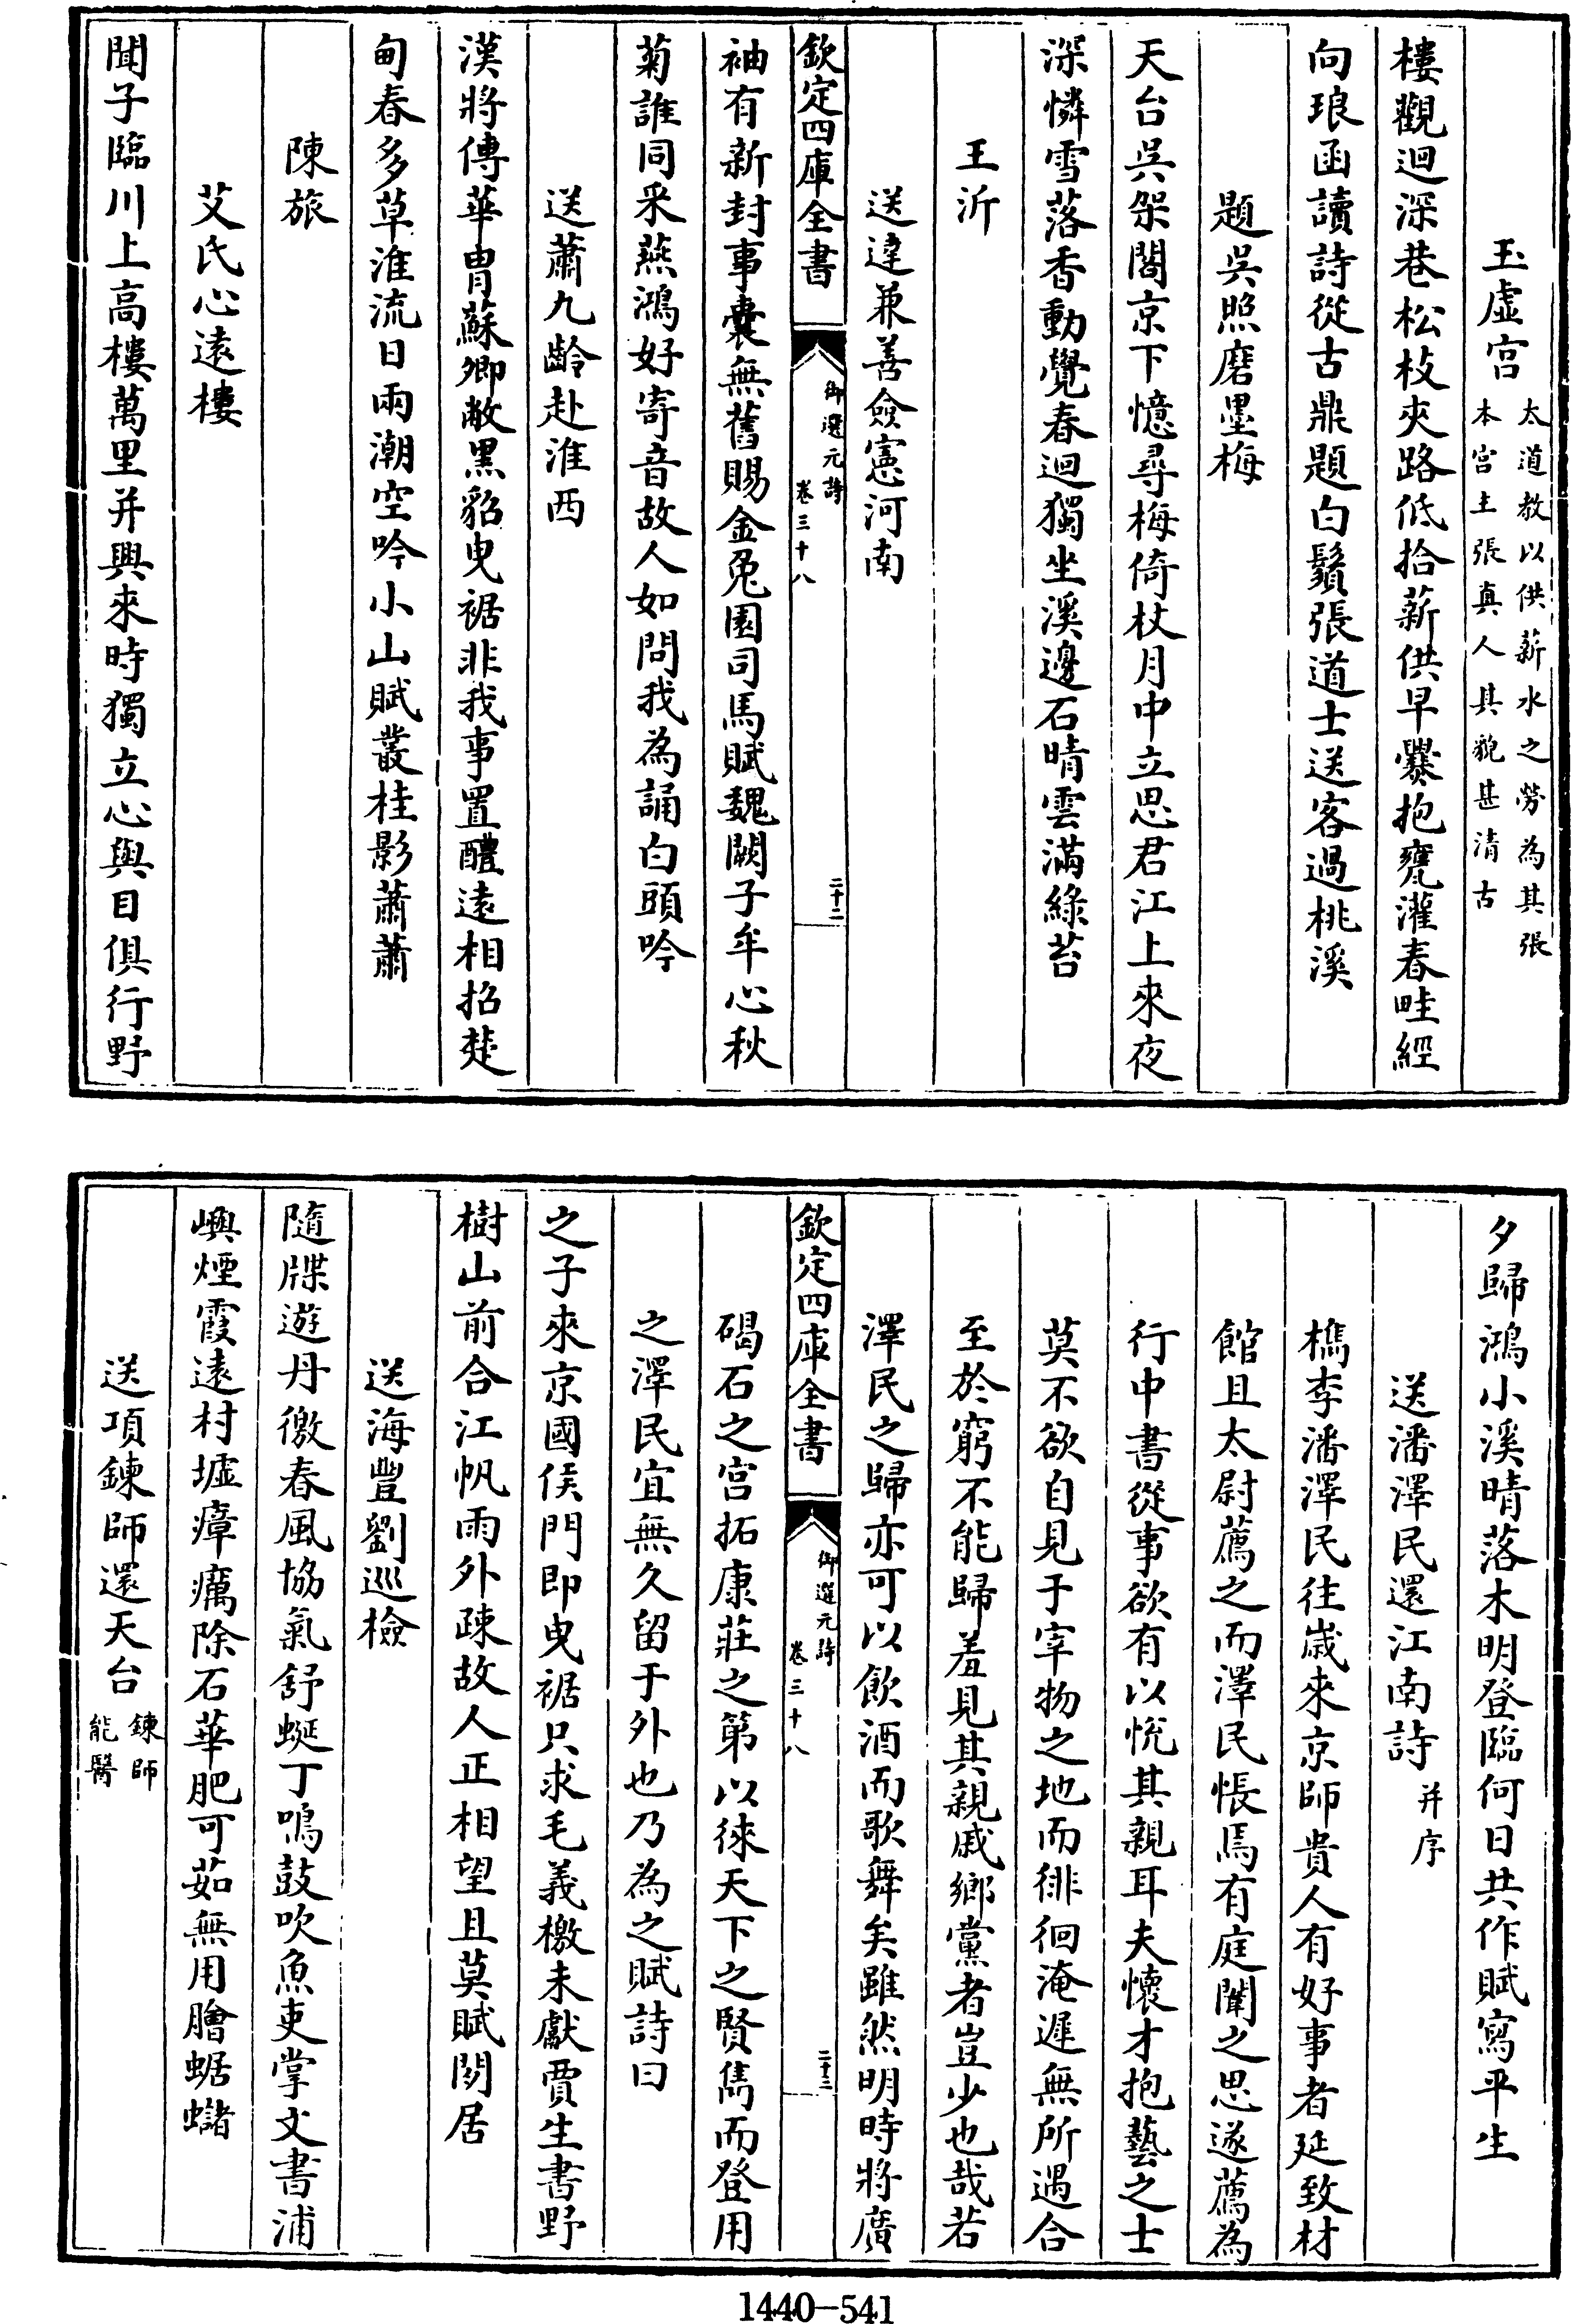 玉虛宮太道教以供薪水之勞為其張本宮主張真人其貌甚清古
樓觀迴深巷松枝夾路低拾薪供早爨抱甕灌春畦經
向琅函讀詩從古鼎題白鬚張道士送客過桃溪
題吳照磨墨梅
天台吳架閣京下憶尋梅倚杖月中立思君江上來夜
深憐雪落香動覺春迴獨坐溪邊石晴雲滿綠苔
王沂
送達兼善僉憲河南
欽定四庫全書 御選元詩卷三十八 二十二
袖有新封事囊無舊賜金兔園司馬賦魏闕子牟心秋
菊誰同采燕鴻好寄音故人如問我為誦白頭吟
送蕭九齡赴淮西
漢將傳華胄蘇卿敝黑貂曳裾非我事置醴遠相招楚
甸春多草淮流日兩潮空吟小山賦叢桂影蕭蕭
陳旅
艾氏心遠樓
聞子臨川上高樓萬里并興來時獨立心與目俱行野
夕歸鴻小溪晴落木明登臨何日共作賦寫平生
送潘澤民還江南詩并序
檇李潘澤民往歲來京師貴人有好事者延致材
館且太尉薦之而澤民悵焉有庭闈之思遂薦為
行中書從事欲有以悅其親耳夫懷才抱藝之士
莫不欲自見于宰物之地而徘徊淹遲無所遇合
至於窮不能歸羞見其親戚鄉黨者豈少也哉若
澤民之歸亦可以飲酒而歌舞矣雖然明時將廣
欽定四庫全書 御選元詩卷三十八 二十三
碣石之宮拓康莊之第以徠天下之賢雋而登用
之澤民宜無久留于外也乃為之賦詩曰
之子來京國侯門即曳裾只求毛義檄未獻賈生書野
樹山前合江帆雨外疎故人正相望且莫賦閒居
送海豐劉巡檢
隨牒遊丹徼春風協氣舒蜒丁鳴鼓吹魚吏掌文書浦
嶼煙霞遠村墟瘴癘除石華肥可茹無用膾蝫蠩
送項鍊師還天台鍊師能醫
1440-541